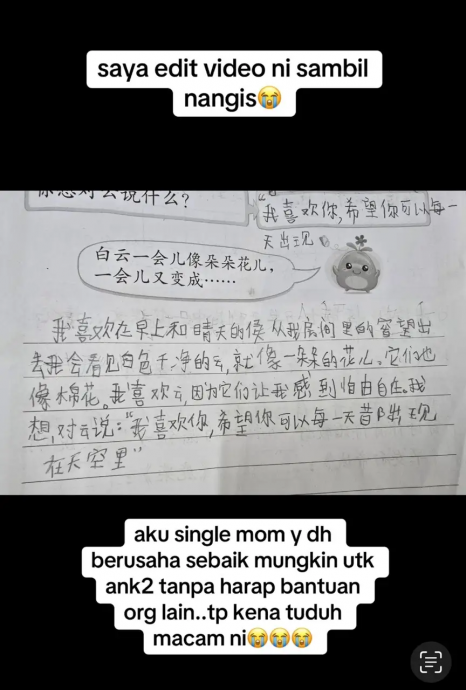 saya edit video ni sambil
nangis😭
你想对云说什么?
"我喜欢你,希望你可以每一
天出现。
白云一会儿像朵朵花儿,
一会儿又变成……
我喜欢在早上和晴天的候从我房间里的窗望出
去我会看见白色干净的云,就像一朵朵的花儿。它们也
像棉花。我喜欢云,因为它们让我感到自由自在。我
想,对云说:"我喜欢你,希望你可以每一天都出现
在天空里"
aku single mom y dh
berusaha sebaik mungkin utk
ank2 tanpa harap bantuan
org lain..tp kena tuduh
macam ni😭😭😭